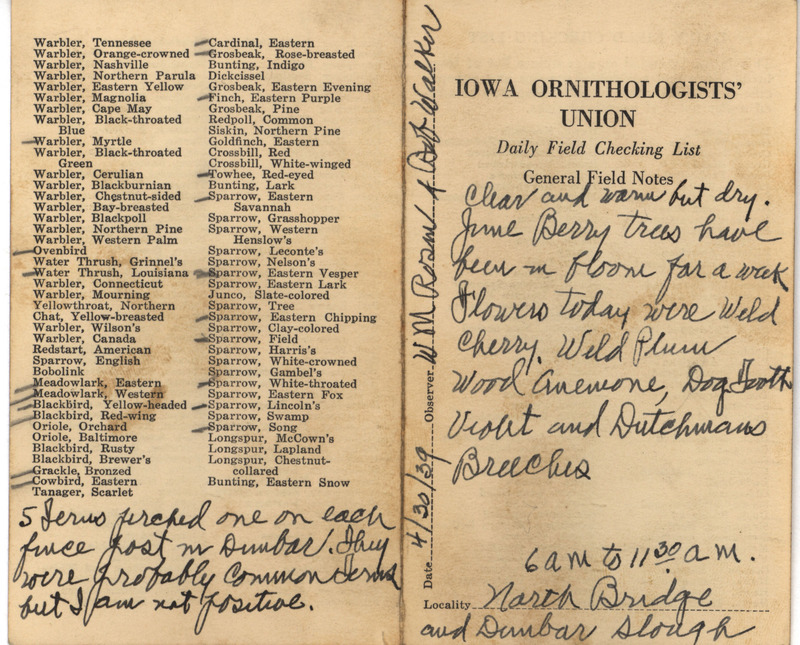 Warbler, Tennessee
Warbler, Orange-crowned
Warbler, Nashville
Warbler, Northern Parula
Warbler, Eastern Yellow
Warbler, Magnolia
Warbler, Cape May
Warbler, Black-throated
Blue
Warbler, Myrtle
Warbler, Black-throated
Green
Warbler, Cerulian
Warbler, Blackburnian
Warbler, Chestnut-sided
Warbler, Bay-breasted
Warbler, Blackpoll
Warbler, Northern Pine
Warbler, Western Palm
Ovenbird
Water Thrush, Grinnel's
Water Thrush, Louisiana
Warbler, Connecticut
Warbler, Mourning
Yellowthroat, Northern
Chat, Yellow-breasted
Warbler, Wilson's
Warbler, Canada
Redstart, American
Sparrow, English
Bobolink
Meadowlark, Eastern
Meadowlark, Western
Blackbird, Yellow-headed
Blackbird, Red-wing
Oriole, Orchard
Oriole, Baltimore
Blackbird, Rusty
Blackbird, Brewer's
Grackle, Bronzed
Cowbird, Eastern
Tanager, Scarlet
Cardinal, Eastern
Grosbeak, Rose-breasted
Bunting, Indigo
Dickcissel
Grosbeak, Eastern Evening
Finch, Eastern Purple
Grosbeak, Pine
Redpoll, Common
Siskin, Northern Pine
Goldfinch, Eastern
Crossbill, Red
Crossbill, White-winged
Towhee, Red-eyed
Bunting, Lark
Sparrow, Eastern
Savannah
Sparrow, Grasshopper
Sparrow, Western
Henslow's
Sparrow, Leconte's
Sparrow, Nelson's
Sparrow, Eastern Vesper
Sparrow, Eastern Lark
Junco, Slate-colored
Sparrow, Tree
Sparrow, Eastern Chipping
Sparrow, Clay-colored
Sparrow, Field
Sparrow, Harris's
Sparrow, White-crowned
Sparrow, Gambel's
Sparrow, White-throated
Sparrow, Eastern Fox
Sparrow, Lincoln's
Sparrow, Swamp
Sparrow, Song
Longspur, McCown's
Longspur, Lapland
Longspur, Chestnut-
collared
Bunting, Eastern Snow
5 Terns perched one on each
fence post in Dunbar. They
were probably Common Terns
but I am not positive.
Date 4/30/39 Observer W M Rosen & Bob Walker
IOWA ORNITHOLOGISTS'
UNION
Daily Field Checking List
General Field Notes
Clear and warm but dry.
June Berry trees have
been in bloom for a week
Flowers today were Wild
Cherry, Wild Plum
Wood Anemone, Dog Tooth
Violet and Dutchmans
Breeches
6 am to 11:30 a m.
Locality North Bridge
and Dunbar Slough